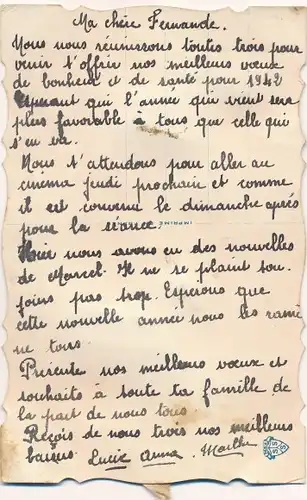 Ma chère Fernande.
Nous nous réunissons toutes trois pour
venir t'offrir nos meilleurs vœux
de bonheur et de santé pour 1942
Espérant qui l'année qui vient sera
plus favorable à tous que celle qui
s'en va.
Nous t'attendons pour aller au
cinéma jeudi prochain et comme
il est convenu le dimanche après
pour la séance.
IMPRIMÉ
Hier nous avons eu des nouvelles
de Marcel. Il ne se plaint tou-
jours pas trop. Esperons que
cette nouvelle année nous les ramè
ne tous.
Présente nos meilleurs vœux et
souhaits à toute ta famille de
la part de nous tous
Reçois de nous trois nos meilleurs
baisers Lucie Anna. Marthe